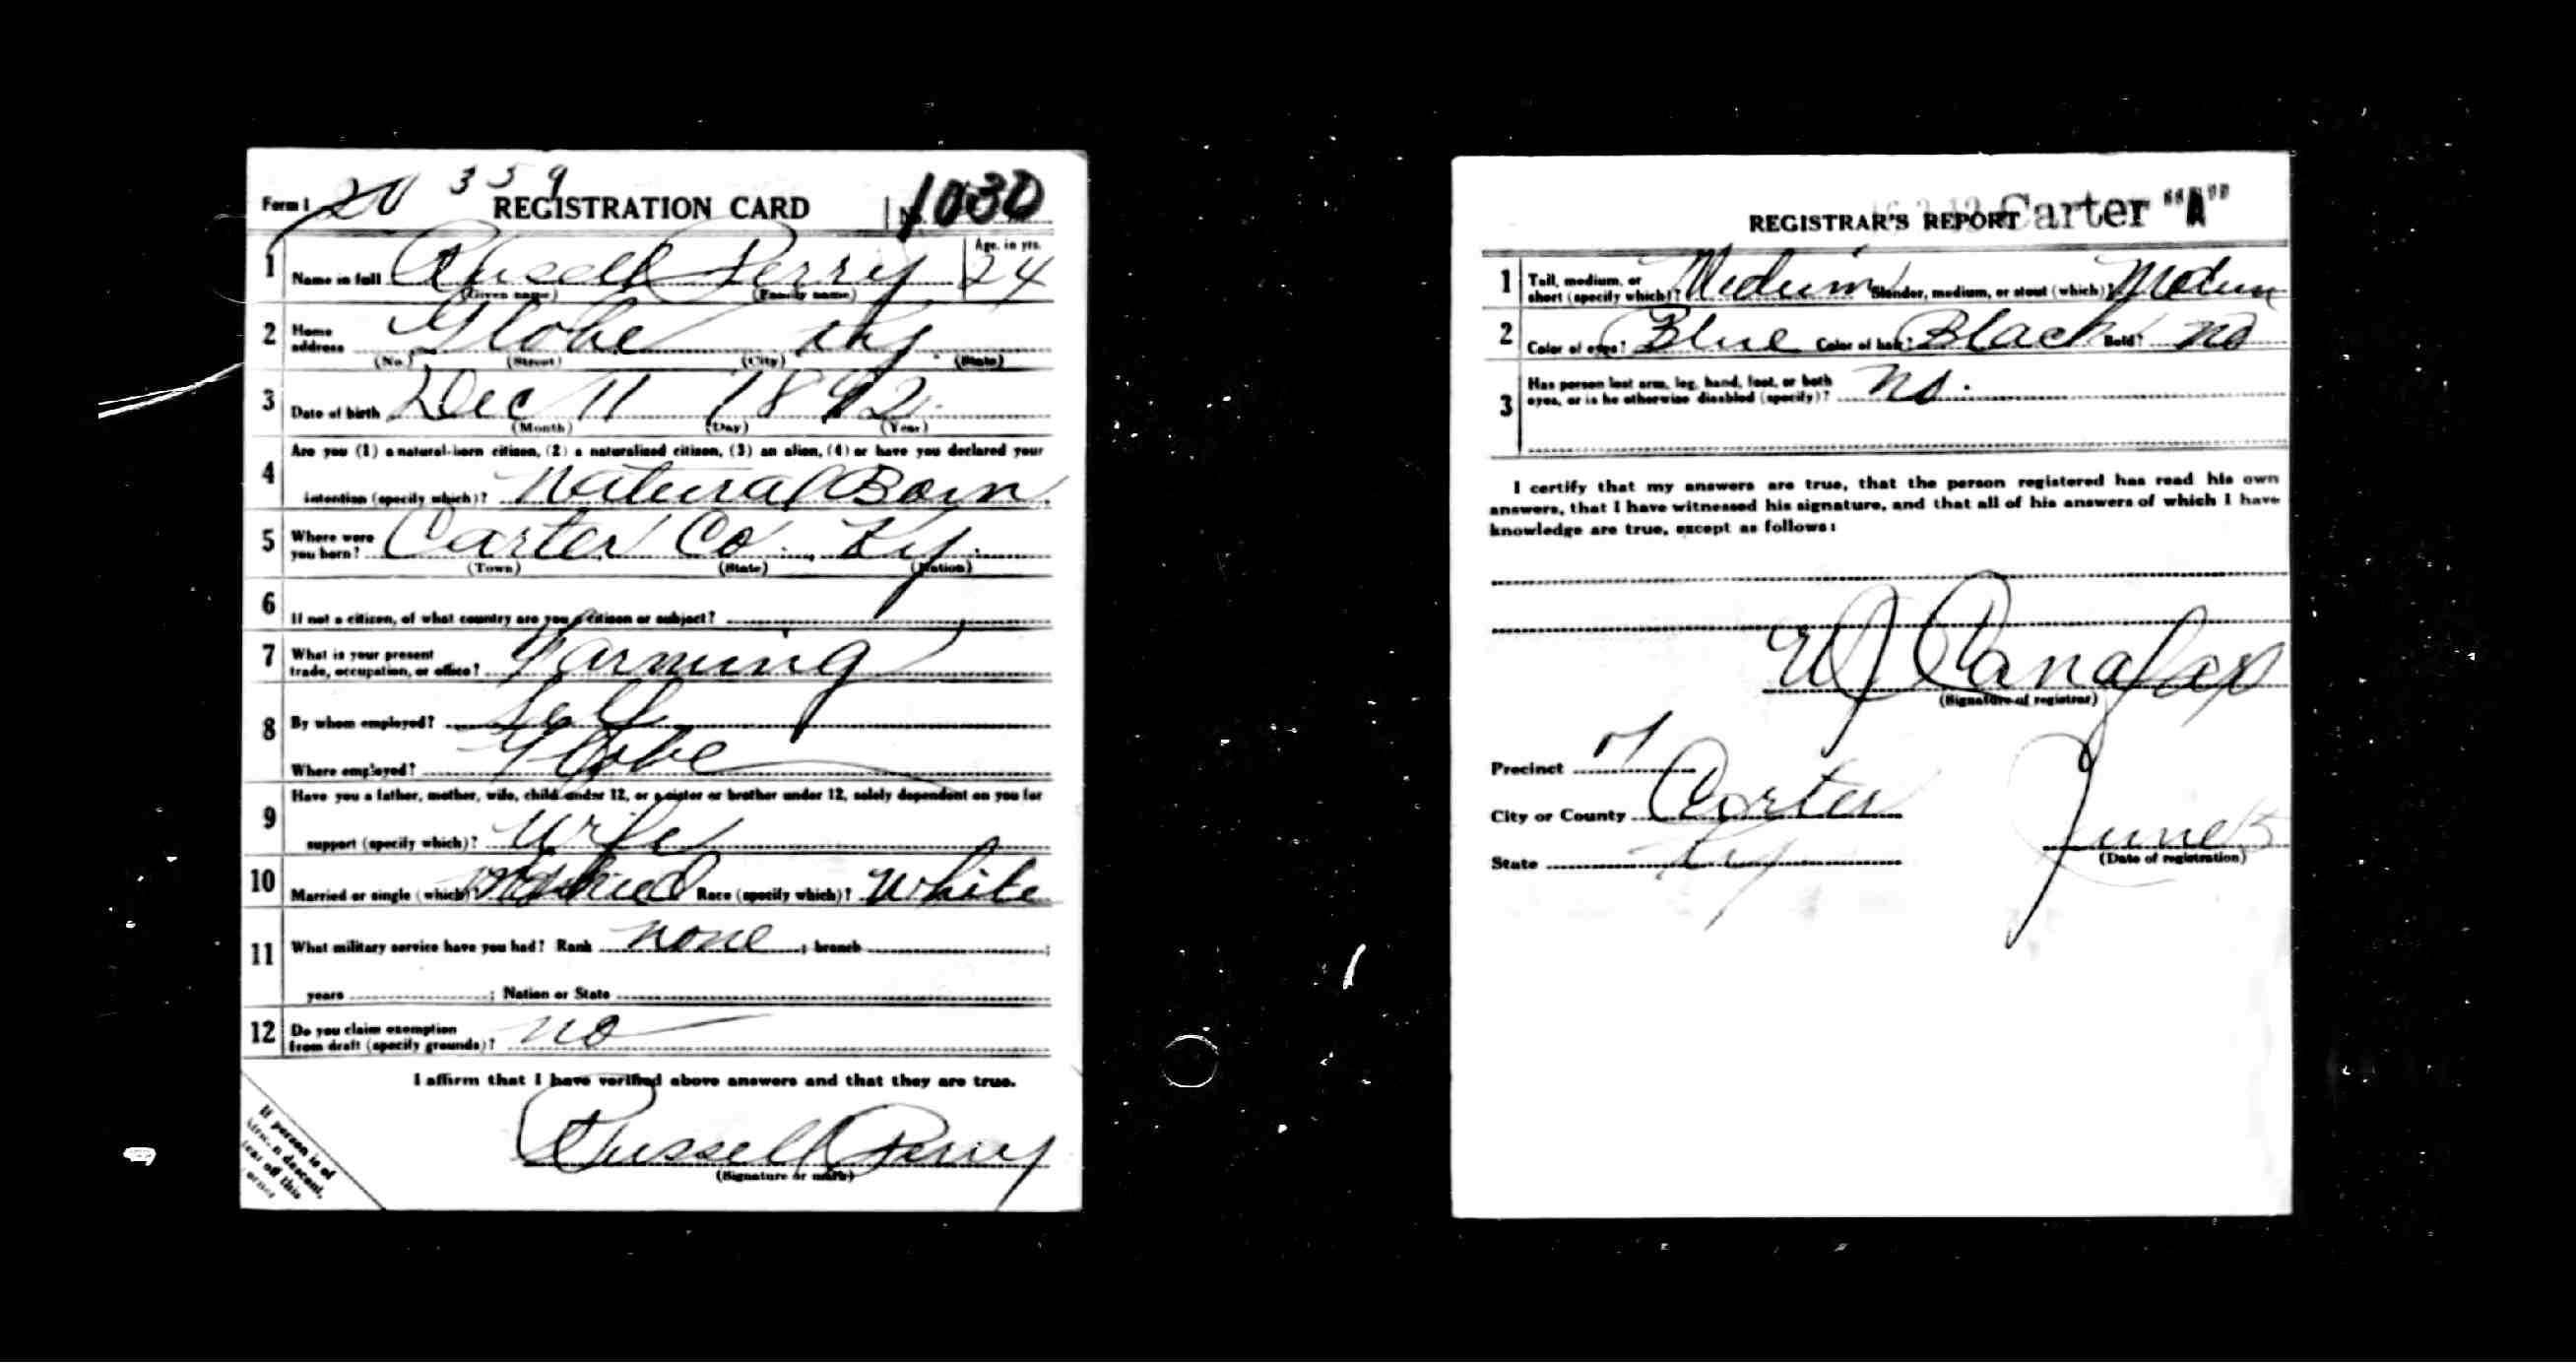 Form 1 20 359 REGISTRATION CARD No. 1030
1 Name in full Rusell Perry Age, in yrs. 24
(Given name) (Family name)
2 Home address Globe Ky
(No.) (Street) (City) (State)
3 Date of birth Dec 11 1892
(Month) (Day) (Year)
4 Are you (1) a natural-born citizen, (2) a naturalized citizen, (3) an alien, (4) or have you declared your
intention (specify which)? Natural Born
5 Where were you born? Carter Co. Ky.
(Town) (State) (Nation)
6 If not a citizen, of what country are you a citizen or subject?
7 What is your present
trade, occupation, or office? Farming
8 By whom employed? Self
Where employed? Globe
9 Have you a father, mother, wife, child under 12, or a sister or brother under 12, solely dependent on you for
support (specify which)? Wife
10 Married or single (which)? Married Race (specify which)? White
11 What military service have you had? Rank none ; branch ;
years ; Nation or State
12 Do you claim exemption
from draft (specify grounds)? no
I affirm that I have verified above answers and that they are true.
Russell Perry
(Signature or mark)
If person is of
African descent,
tear off this
corner
REGISTRAR'S REPORT Carter "A"
1 Tall, medium, or
short (specify which)? Medium Slender, medium, or stout (which)? Medium
2 Color of eyes? Blue Color of hair? Black Bald? no
3 Has person lost arm, leg, hand, foot, or both
eyes, or is he otherwise disabled (specify)? no.
I certify that my answers are true, that the person registered has read his own
answers, that I have witnessed his signature, and that all of his answers of which I have
knowledge are true, except as follows:
(Signature of registrar)
Precinct
City or County Carter
State Ky
June 5
(Date of registration)